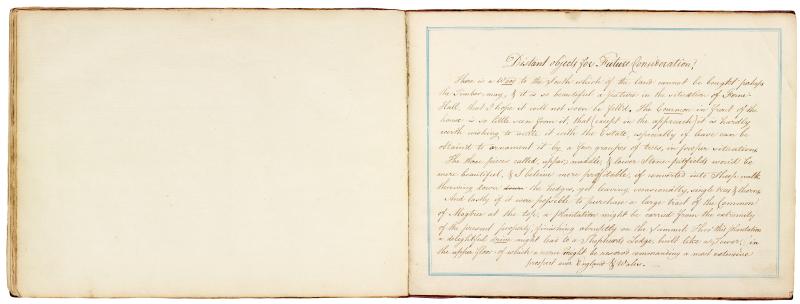 Distant objects for Future Consideration!
There is a Wood to the South which if the land cannot be bought perhaps
the Timber may, & it is so beautiful a feature in the situation of
Hall, that I hope it will not soon be fell'd. The Common in front of the
house is so little seen from it, that (except in the approach) it is hardly
worth wishing to unite it with the Estate, especially if leave can be
obtain'd to ornament it by a few groupes of trees, in proper situations
The three pieces called, upper, middle, & lower Stone-pitfields would be
more beautiful, & I believe more profitable, if converted into Sheep walk
throwing down the hedges, yet leaving, occasionally, single trees & thorns
And lastly if it were possible to purchase a large tract of the Common
of at the top, a plantation might be carried from the extremity
of the present property, finishing abruptly on the Summit. Thro' this plantation
a delightful drive might lead to a Shepherds Lodge, built like a Tower; in
the upper floor of which a room might be reserv'd commanding a most extensive
prospect over England & Wales.